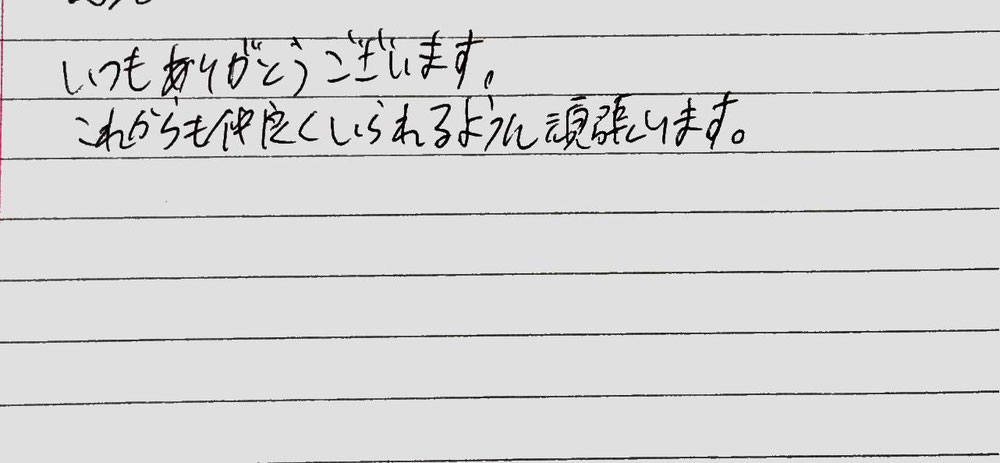 いつもありがとうございます。
これからも仲良くしいられるように頑張ります。